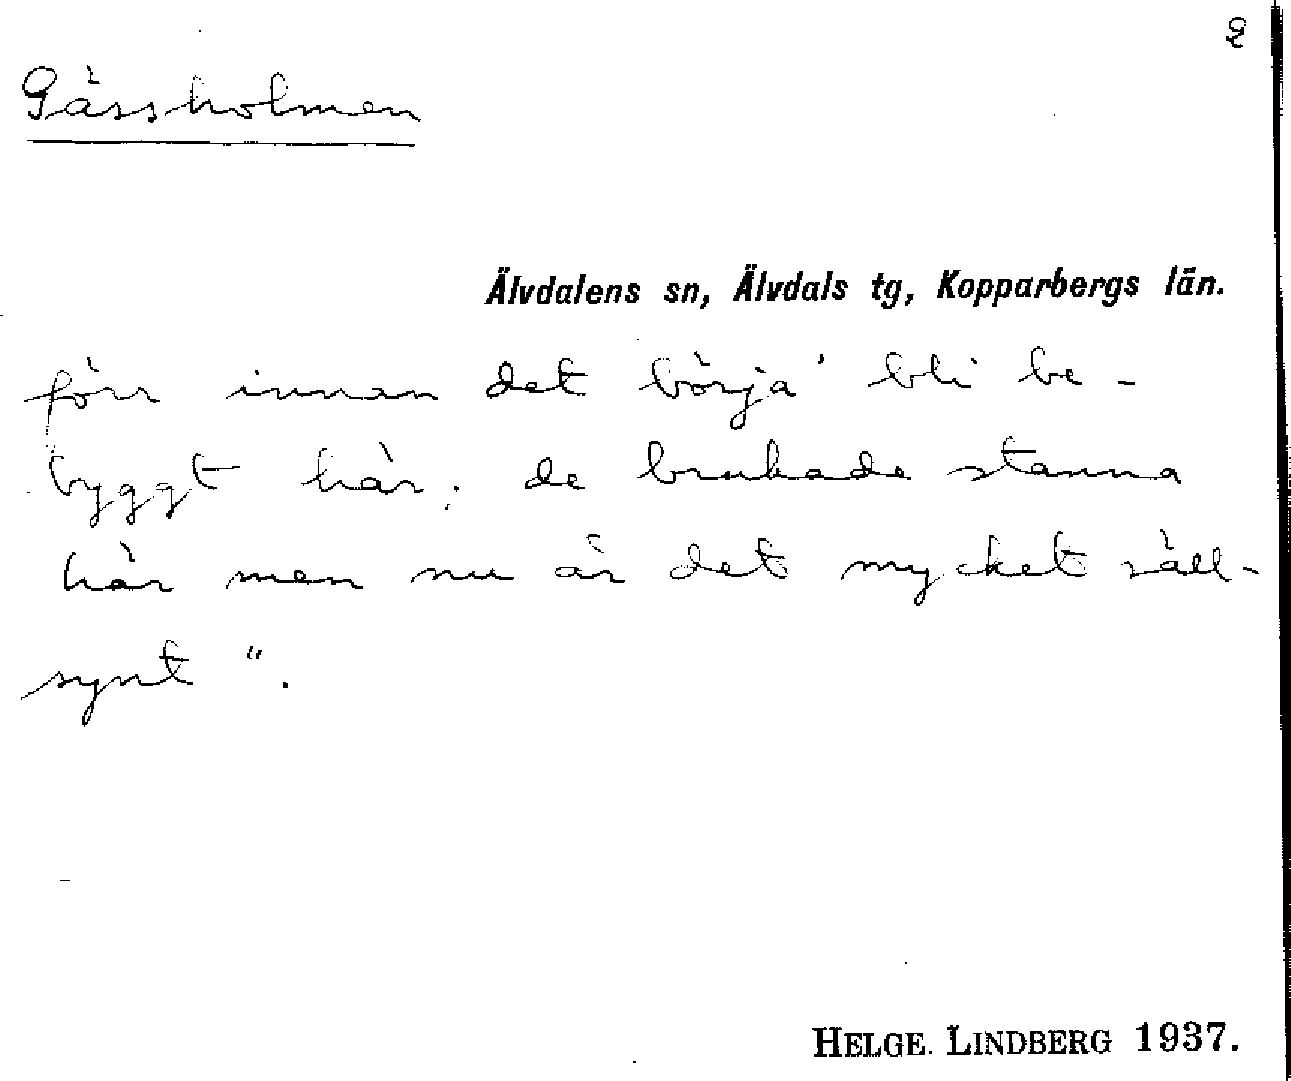 2
Gässholmen
Älvdalens sn, Älvdals tg, Kopparbergs län.
förr innan det börja' bli be-
byggt här; de brukade stanna
här men nu är det mycket säll-
synt".
HELGE LINDBERG 1937.